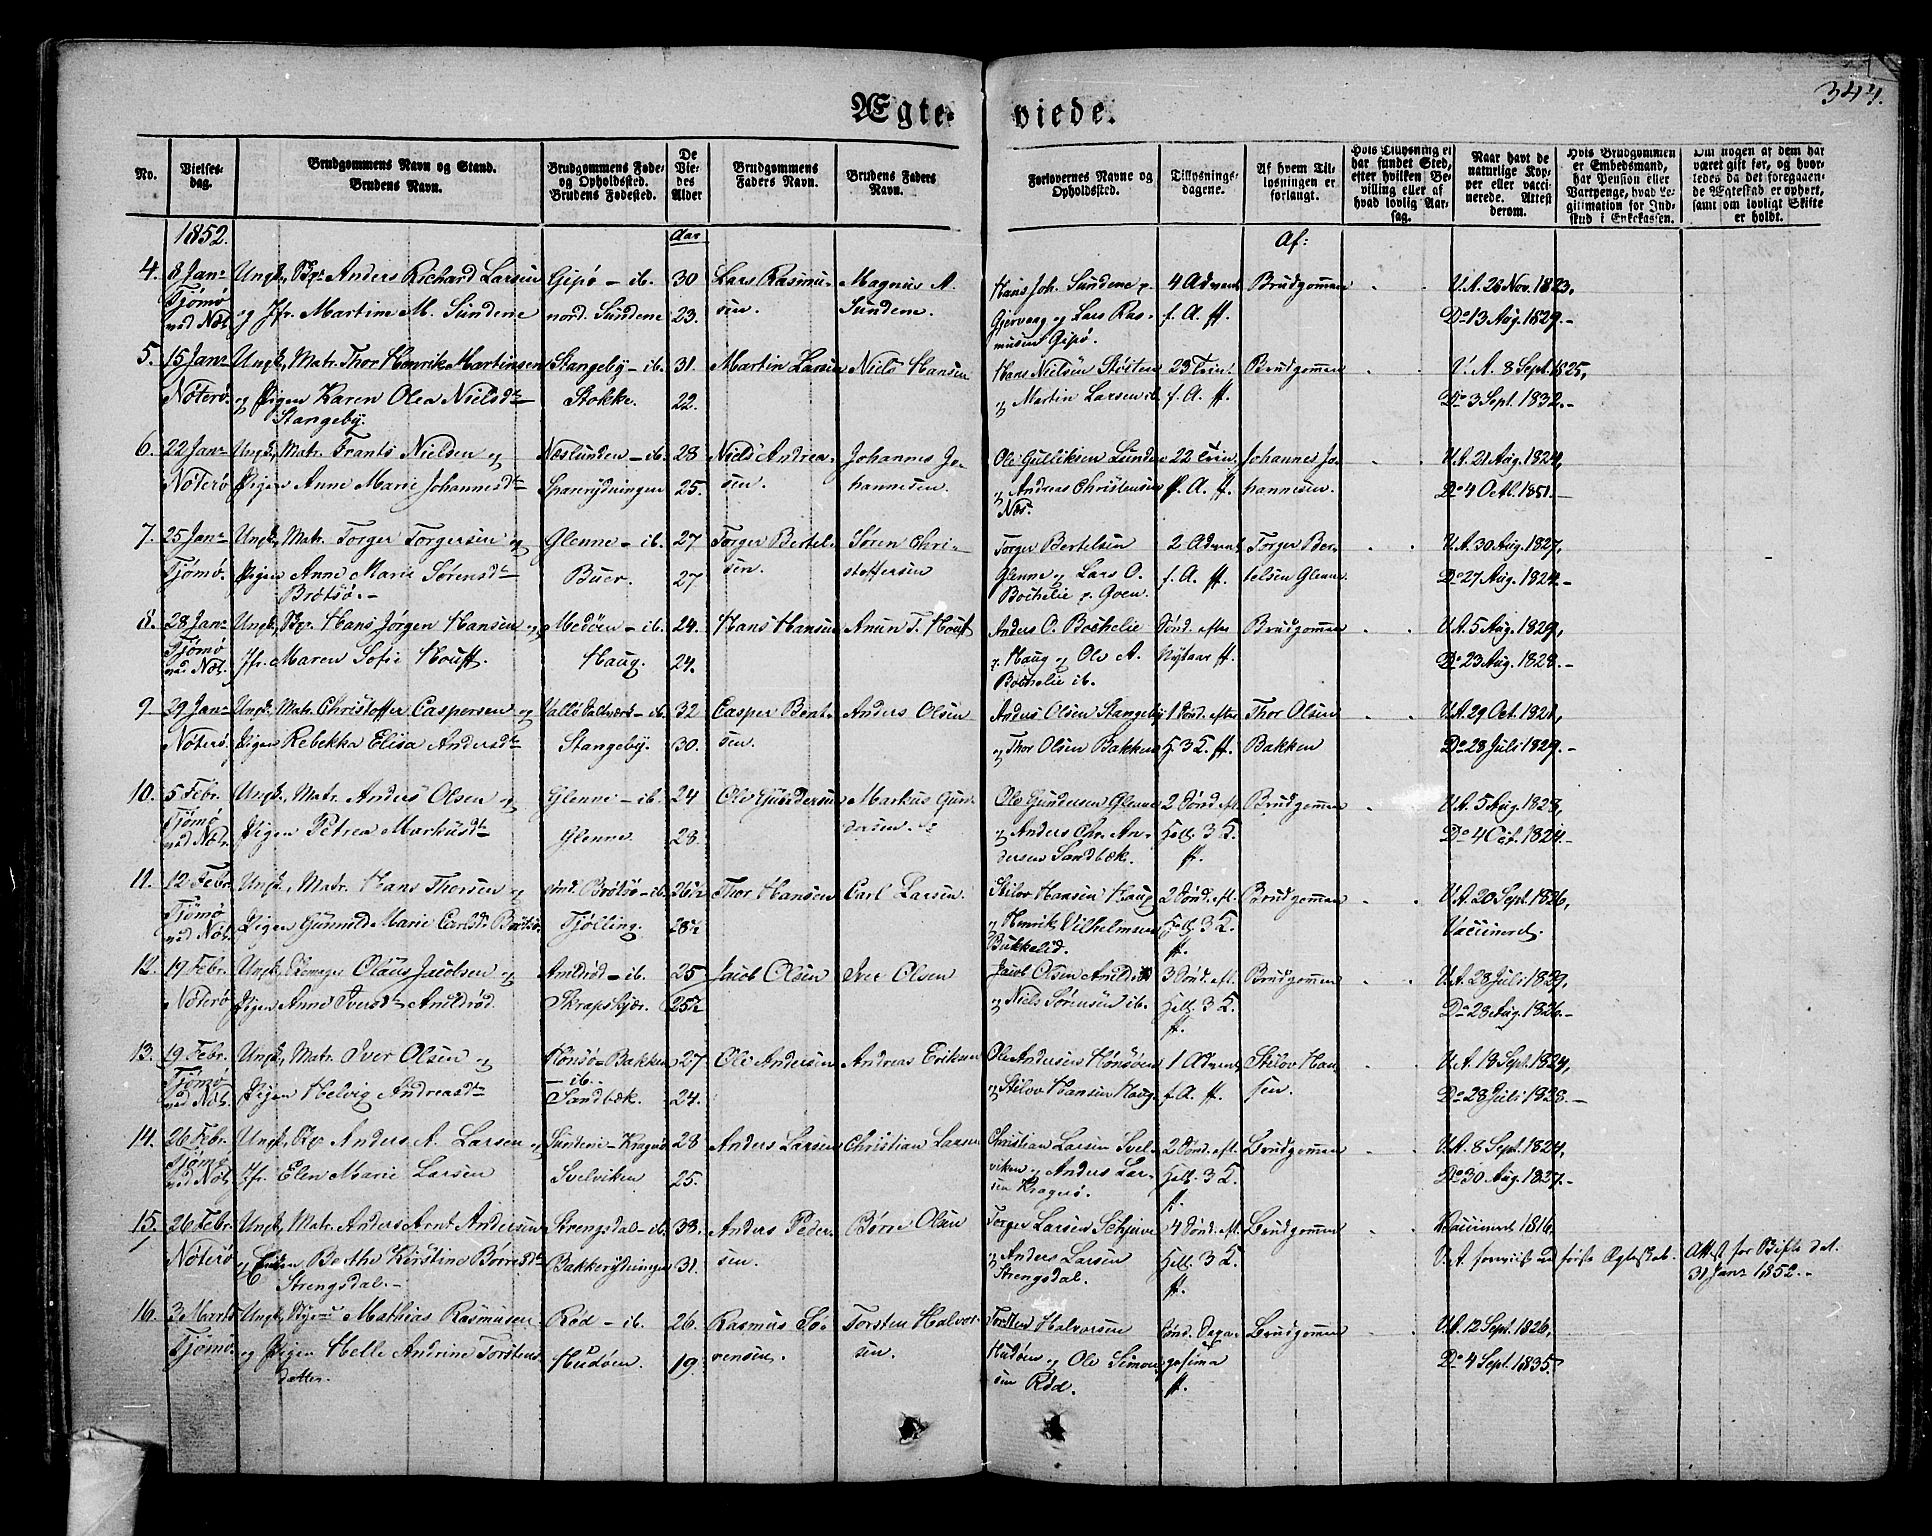 344.
Ægte- viede.
No.
Vielsesdag.
Brudgommens Navn og Stand.
Brudens Navn.
Brudgommens Føde- og Opholdssted.
Brudens Fødested.
De Viedes Alder
Brudgommens Faders Navn.
Brudens Faders Navn.
Forlovernes Navne og Opholdssted.
Tillysningsdagene.
Af hvem Tillysningen er forlangt.
Hvis Tillysning ei har fundet Sted, efter hvilken Bevilling eller af hvad lovlig Aarsag.
Naar havt de naturlige Kopper eller vaccinerede. Attest derom.
Hvis Brudgommen er Embedsmand, har Pension eller Vartpenge, hvad Legitimation for Indskud i Enkekassen.
Om nogen af dem har været gift før, og hvorledes da det foregaaende Ægteskab er ophørt, samt om lovligt Skifte er holdt.
1852. Aar Af:
4. 8 Janr Ungk. Anders Richard Larsen Gipø - ib. 30 Lars Rasmu- Magnus A. Hans Joh. Sundene p. 4 Advent Brudgommen V.A. 26 Nov. 1823,
Tjømø og Jfr. Martine M. Sundene nord. Sundene 23. sen. Sundene. Gjervaag og Lars Ras- f. A. ff. Do 13 Aug. 1829.-
ved Nøt. musen Gipø.
5. 15 Janr Ungk. Matr. Thor Henrik Martinsen Stangeby - ib. 31. Martin Larsen Niels Hansen Hans Nielsen Støiten 23 Trin. Brudgommen V. A. 8 Sept. 1825,
Nøterø. og Pigen Karen Olea Nielsdtr Stokke. 22. og Martin Larsen ib. f. A. ff. Do 3 Sept. 1832.-
Stangeby.
6. 22 Janr Ungk. Matr. Frants Nielsen og Næslunden - ib. 28 Niels Andrea- Johannes Jo- Ole Gulliksen Lunden 22 Trin. Johannes Jo- V.A. 21 Aug. 1824,
Nøterø Pigen Anne Marie Johannesdtr Sparerydningen 25. sen. hannesen. og Andreas Christensen f. A. ff. hannesen. Do 4 Octb. 1851.-
Næs.
7. 25 Janr Ungk. Matr. Torger Torgersen og Glenne - ib. 27 Torger Bertel- Søren Chri- Torger Bertelsen 2 Advent Torger Ber- V.A. 30 Aug. 1827,
Tjømø. Pigen Anne Marie Sørensdtr Buer. 27. sen. stoffersen Glenne og Lars O. f. A. ff. telsen Glenne. Do 27 Aug. 1824.-
Brøtsø.- Bothelie p. Goen.
8. 28 Janr Ungk. Hans Jørgen Hansen og Medøen - ib. 24. Hans Hansen Anun T. Houff Anders O. Bothelie Sønd. efter Brudgommen V.A. 5 Aug. 1829,
Tjømø Jfr. Maren Sofie Houff. Haug. 24. p. Haug og Ole A. Nytaar ff. Do 23 Aug. 1828.-
ved Nøt. Bothelie ib.
9 29 Janr Ungk. Matr. Christoffer Caspersen og Vallø Saltværk - ib. 32 Casper Bent- Anders Olsen Anders Olsen Stangeby 1 Sønd. efter Thor Olsen V.A. 29 Oct. 1821,
Nøterø. Pigen Rebekka Elisa Andersdtr Stangeby. 30. sen. og Thor Olsen Bakken H. 3 K. ff. Bakken Do 28 Juli 1829.-
10. 5 Febr. Ungk. Matr. Anders Olsen og Glenne - ib. 24 Ole Gundersen Markus Gun- Ole Gundersen Glenne 2 Sønd. eft. Brudgommen V.A. 5 Aug. 1828,
Tjømø Pigen Petrea Markusdtr Glenne. 28. dersen. og Anders Chr. An- Hell. 3 K. Do 4 Oct. 1824.-
ved Nøt. dersen Sandbæk. ff.
11. 12 Febr. Ungk. Matr. Hans Thorsen og Brøtsø - ib. 26½ Thor Hansen Carl Larsen. Stilov Hansen Haug 2 Sønd. eft. Brudgommen V.A. 20 Sept. 1826,
Tjømø Pigen Gunnild Marie Carlsdtr Brøtsø. Tjølling. 28½ og Henrik Vilhelmsen Hell. 3 K. Vaccineret.
ved Nøt. Bukkelid. ff.
12. 19 Febr. Ungk. Olaus Jacobsen og Amdrød - ib. 25 Jacob Olsen Iver Olsen Jacob Olsen Amdrød 3 Sønd. eft. Brudgommen V.A. 28 Juli 1829,
Nøterø Pigen Anne Iversdtr Amdrød. Skrapskjær. 25½ og Niels Sørensen ib. Hell. 3 K. Do 28 Aug. 1826.-
ff.
13. 19 Febr. Ungk. Matr. Iver Olsen og Hønsø-Bakken 27 Ole Andersen Andreas Eriksen Ole Andersen Hønsøen 1 Advent Stilov Han- V.A. 13 Sept. 1824,
Tjømø Pigen Helvig Andreasdtr - ib. 24. og Stilov Hansen Haug. f. A. ff. sen. Do 28 Juli 1828.-
ved Nøt. Sandbæk.
14. 26 Febr. Ungk. Anders A. Larsen og Sundene - Kragerø 28 Anders Larsen Christian Larsen Christian Larsen Svel- 2 Sønd. eft. Brudgommen V.A. 8 Sept. 1824,
Tjømø Jfr. Elen Marie Larsen Svelviken 25. viken og Anders Lar- Hell. 3 K. Do 30 Aug. 1837.-
ved Nøt. sen Kragerø. ff.
15. 26 Febr. Ungk. Matr. Anders Arnt Andersen Strengsdal - ib. 38. Anders Peder- Børre Olsen Torger Larsen Schjerve 4 Sønd. eft. Brudgommen Vaccineret 1816.
Nøterø og Enken Berthe Kirstine Børresdtr Bakkerydningen 31. sen. og Anders Larsen Hell. 3 K. V.A. forevist ved første Ægteskab. Attest for Skifte dat.
Strengsdal.- Strengsdal. ff. 31 Janr 1852.-
16. 3 Marts Ungk. Mathias Rasmusen Rød - ib. 26. Rasmus Sø- Torsten Halvor- Torsten Halvorsen Sønd. Sexa- Brudgommen V.A. 12 Sept. 1826,
Tjømø. og Pigen Helle Andrine Torstens- Hudøen. 19. rensen. sen. Hudøen og Ole Simon- gesima Do 4 Sept. 1835.
datter. sen Rød. ff.